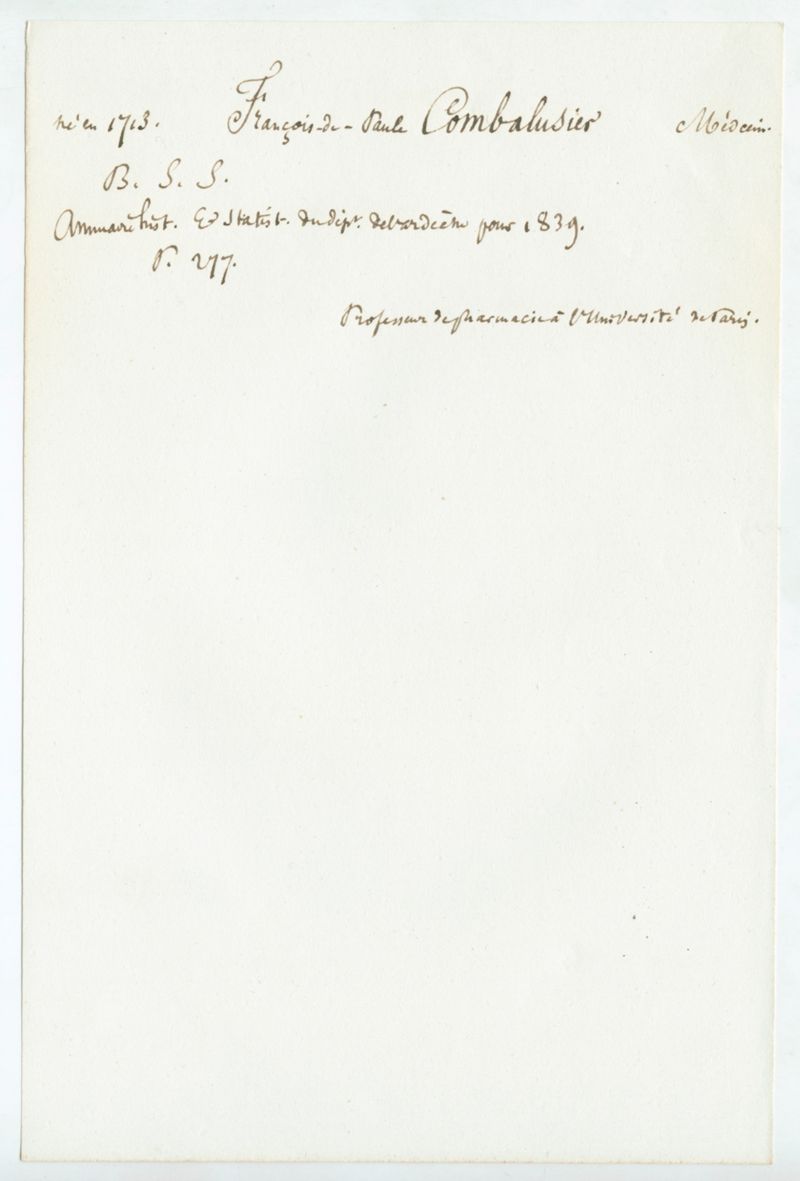 né en 1713. François-de-Paule Combalusier Médecin.
B. S. S.
Annuaire hist. Et statist. du dépt. de l'ardèche pour 1839.
P. 277.
Professeur de pharmacie à l'Université de Paris.